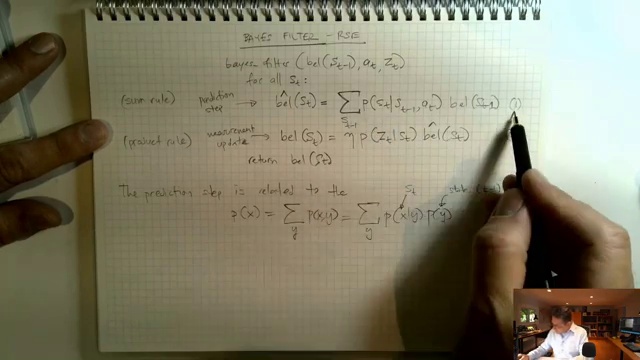 BAYES FILTER - RSE
bayes filter ( bel(St-1), at, Zt )
for all St:
(sum rule) prediction step → bel̂(St) = Σ St-1 p(St|St-1, at) bel(St-1) (1)
(product rule) measurement update → bel(St) = η p(Zt|St) bel̂(St)
return bel(St)
The prediction step is related to the
St
p(x) = Σ y p(x,y) = Σ y p(x|y) p(y)